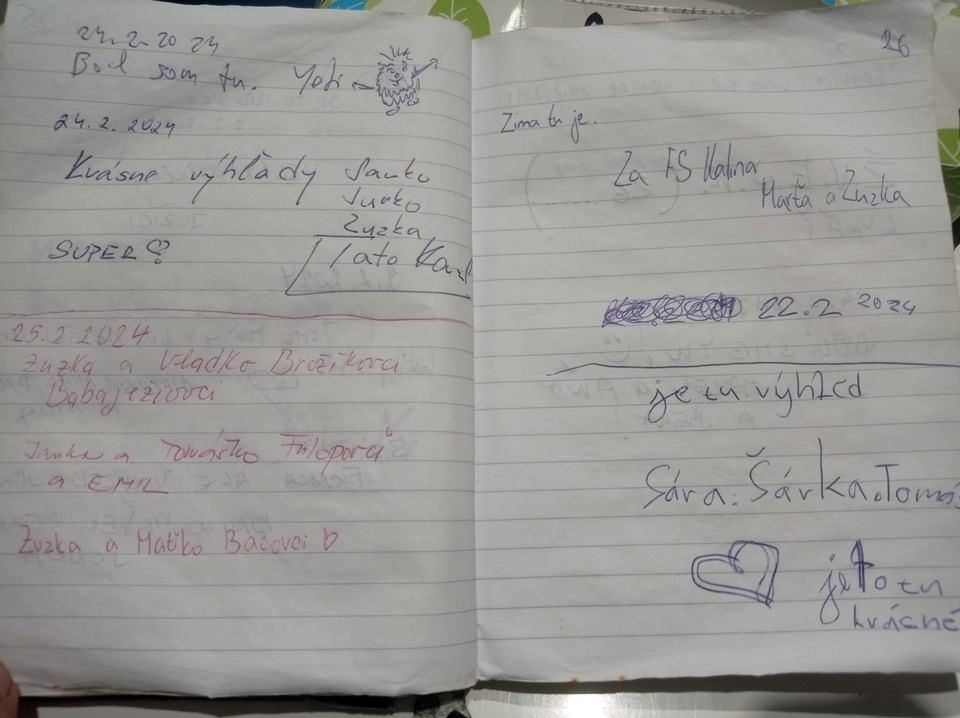 24.2.2024
Bol som tu. Yeti
24.2.2024
Krásne výhľady Janko
Junko
Zuzka
SUPER? Tato
25.2.2024
Zuzka a Vladko Brežíkovci
Babajeziovci
Janka a Tomáško Fülöpovci
a EMIL
Zuzka a Maťko Bačovci
26
Zima tu je.
Za FS Kalina
Marťa a Zuzka
22.2 2024
je tu výhled
Sára. Šárka. Tomá
je to tu
krásné